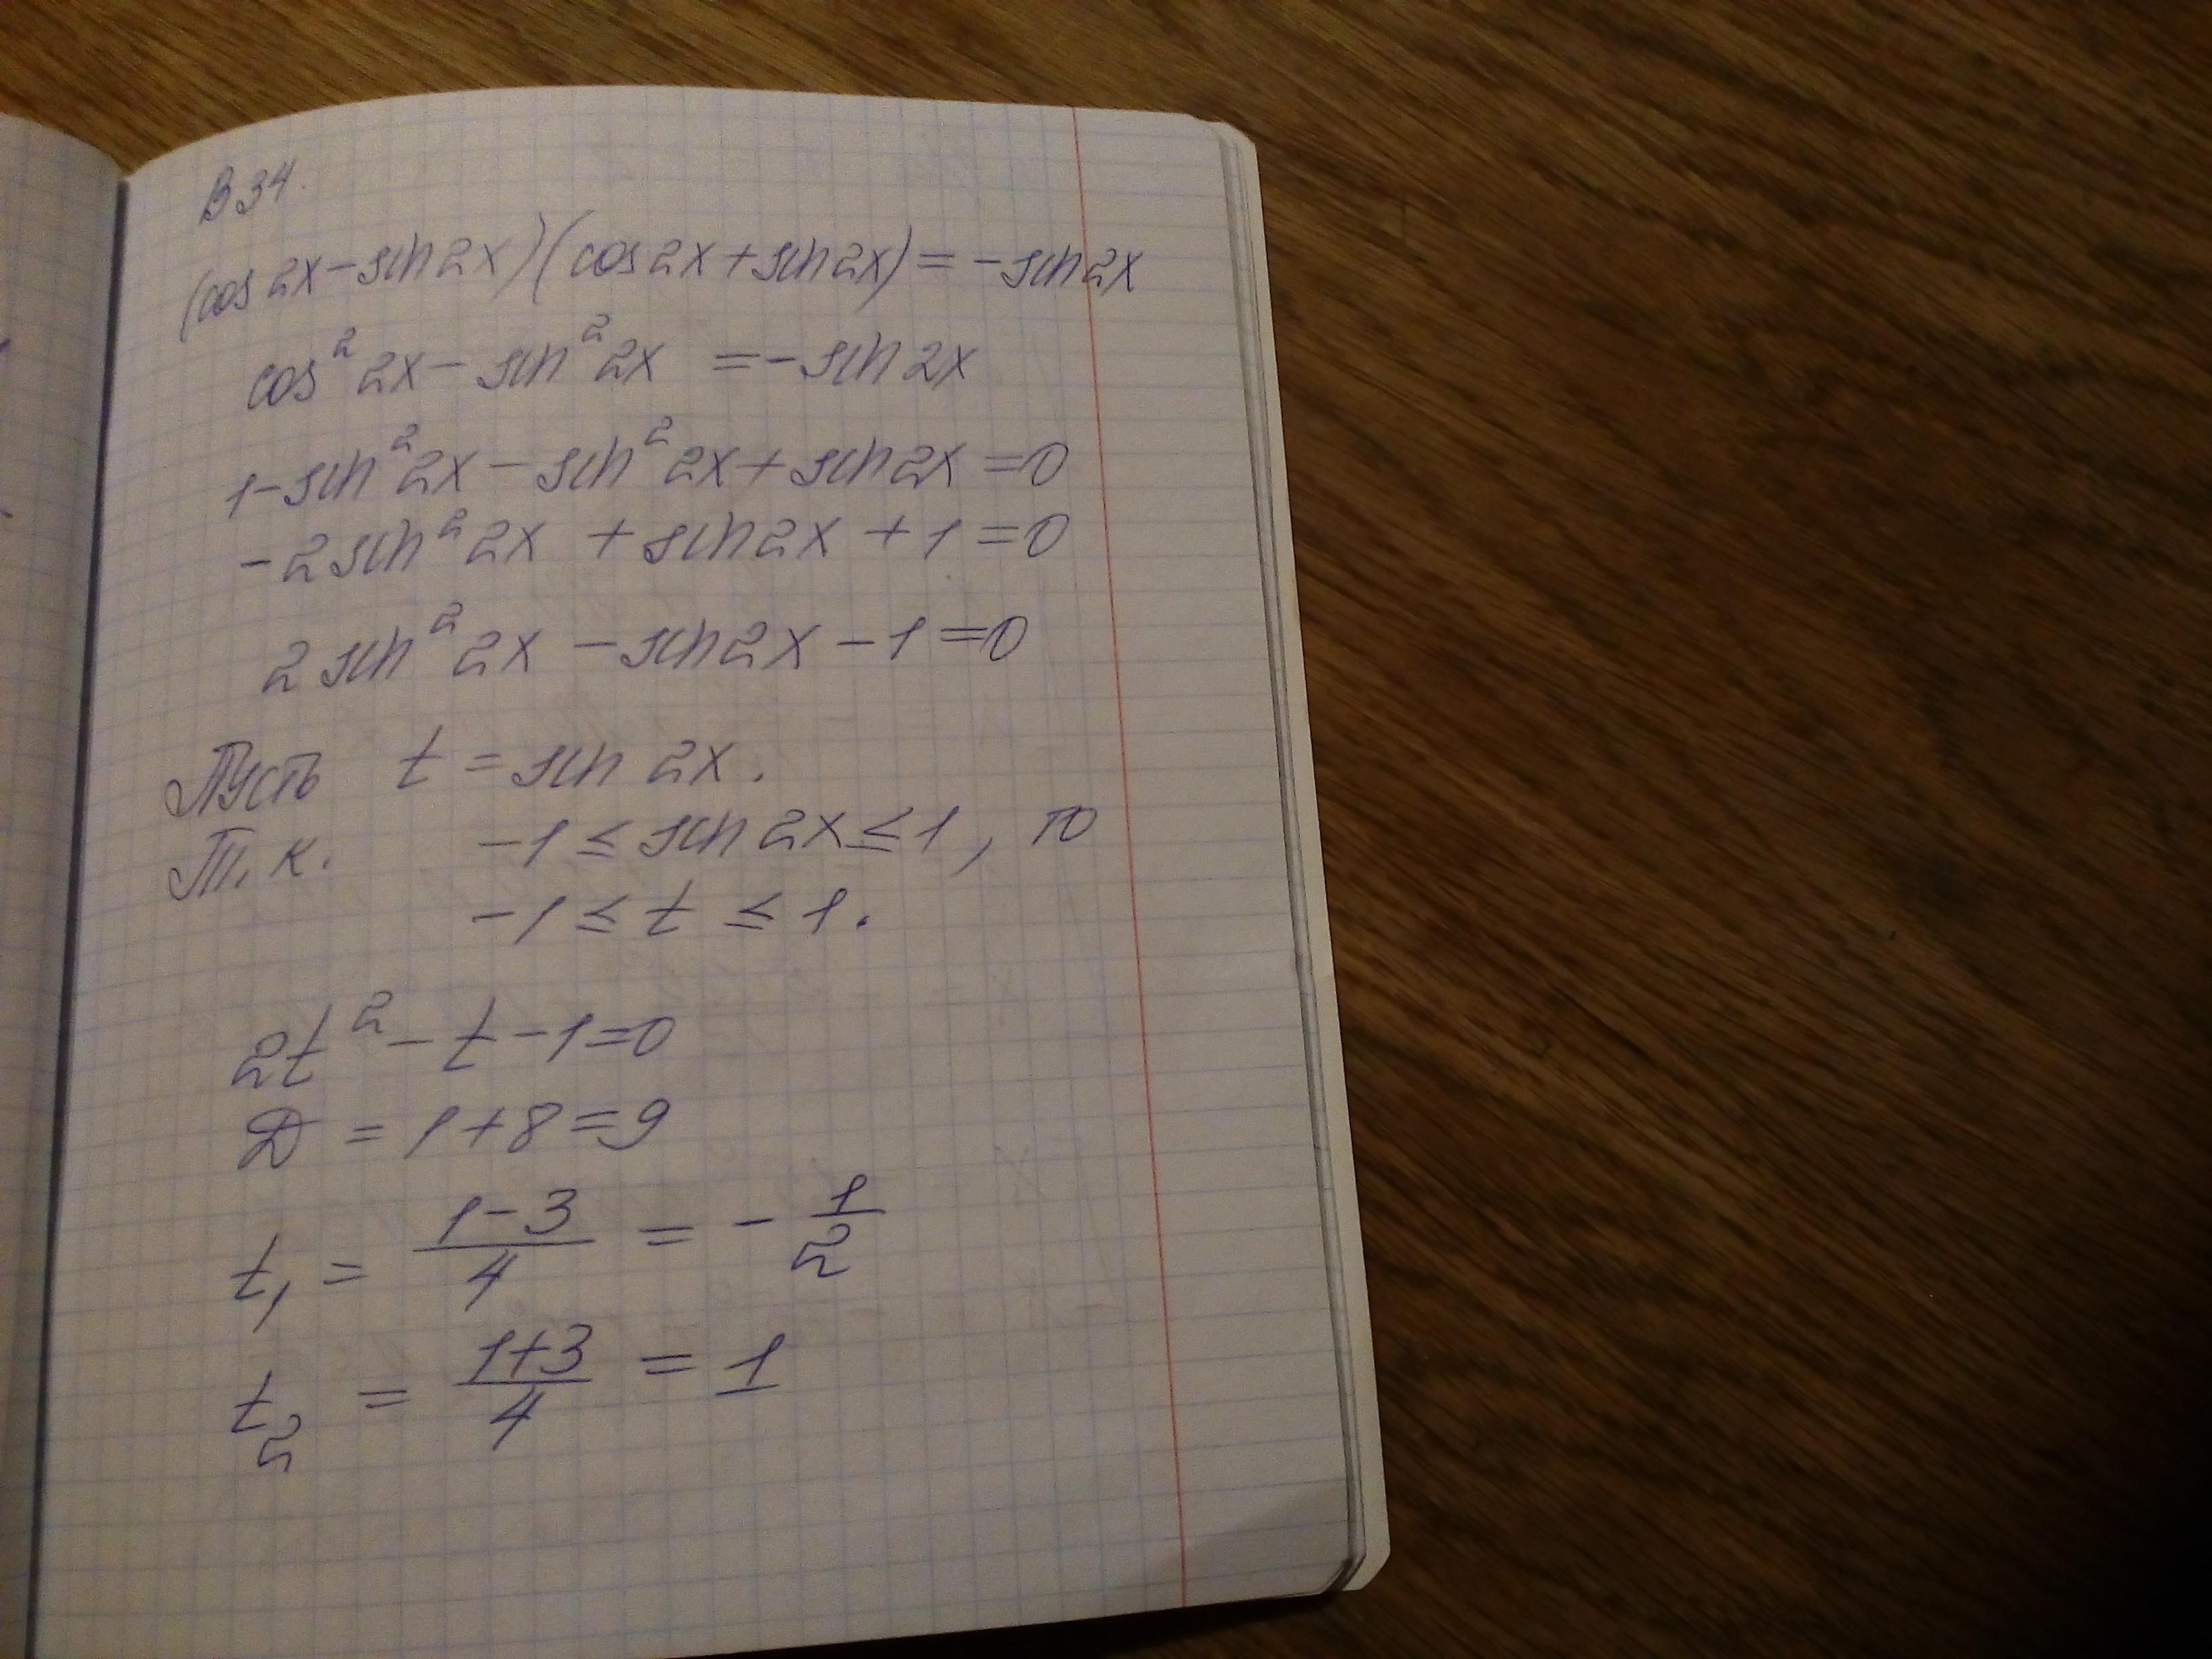 В34.
(cos 2x - sin 2x)(cos 2x + sin 2x) = - sin 2x
cos² 2x - sin² 2x = - sin 2x
1 - sin² 2x - sin² 2x + sin 2x = 0
-2 sin² 2x + sin 2x + 1 = 0
2 sin² 2x - sin 2x - 1 = 0
Пусть t = sin 2x.
Т.к. -1 ≤ sin 2x ≤ 1, то
-1 ≤ t ≤ 1.
2t² - t - 1 = 0
D = 1 + 8 = 9
t₁ = (1-3)/4 = - 1/2
t₂ = (1+3)/4 = 1